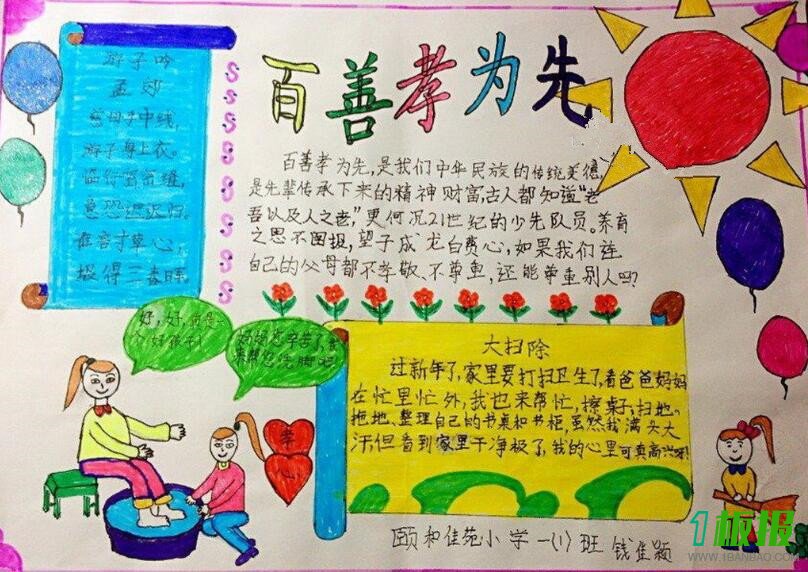 百善孝为先
游子吟
孟郊
慈母手中线,
游子身上衣。
临行密密缝,
意恐迟迟归。
谁言寸草心,
报得三春晖。
百善孝为先,是我们中华民族的传统美德,
是先辈传承下来的精神财富古人都知道“老
吾以及人之老,”更何况21世纪的少先队员。养育
之恩不图报,望子成龙白费心,如果我们连
自己的父母都不孝敬、不尊重,还能尊重别人吗?
好,好,真是一
个好孩子!
妈妈您辛苦了,我
来帮您洗脚吧!
孝
心
大扫除
过新年了,家里要打扫卫生了,看爸爸妈妈
在忙里忙外,我也来帮忙,擦桌子,扫地。
拖地、整理自己的书桌和书柜,虽然我满头大
汗,但看到家里干净极了,我的心里可真高兴呀!
颐和佳苑小学一(1)班 钱佳颖
1板报
WWW.1BANBAO.COM